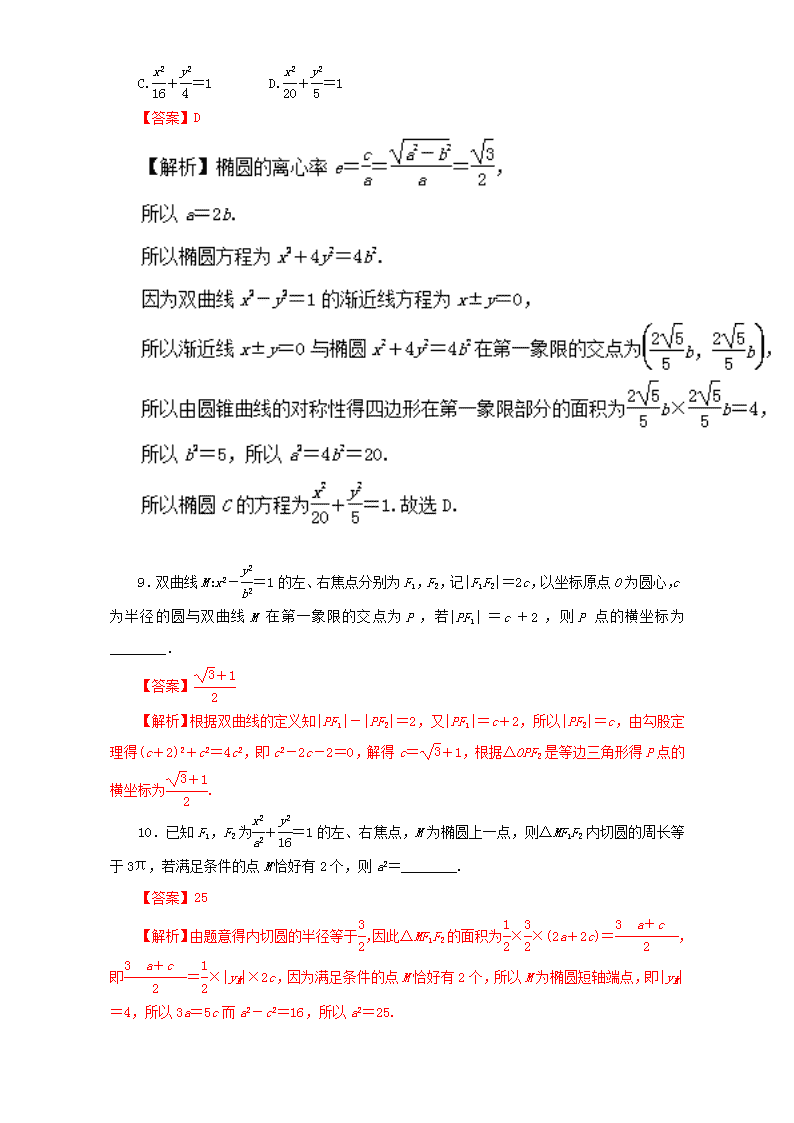 C.x²/16+y²/4=1 D.x²/20+y²/5=1
【答案】D
【解析】椭圆的离心率 e=c/a=√(a²-b²)/a=√3/2,
所以 a=2b.
所以椭圆方程为 x²+4y²=4b².
因为双曲线 x²-y²=1 的渐近线方程为 x±y=0,
所以渐近线 x±y=0 与椭圆 x²+4y²=4b² 在第一象限的交点为(2√5/5 b, 2√5/5 b),
所以由圆锥曲线的对称性得四边形在第一象限部分的面积为2√5/5 b×2√5/5 b=4,
所以 b²=5,所以 a²=4b²=20.
所以椭圆 C 的方程为x²/20+y²/5=1.故选 D.
9.双曲线 M:x²-y²/b²=1 的左、右焦点分别为 F₁,F₂,记|F₁F₂|=2c,以坐标原点 O 为圆心,c
为半径的圆与双曲线 M 在第一象限的交点为 P ,若|PF₁| =c +2 ,则 P 点的横坐标为
________.
【答案】(√3+1)/2
【解析】根据双曲线的定义知|PF₁|-|PF₂|=2,又|PF₁|=c+2,所以|PF₂|=c,由勾股定
理得(c+2)²+c²=4c²,即 c²-2c-2=0,解得 c=√3+1,根据△OPF₂是等边三角形得 P 点的
横坐标为(√3+1)/2.
10.已知 F₁,F₂为x²/a²+y²/16=1 的左、右焦点,M 为椭圆上一点,则△MF₁F₂内切圆的周长等
于 3π,若满足条件的点 M 恰好有 2 个,则 a²=________.
【答案】25
【解析】由题意得内切圆的半径等于3/2,因此△MF₁F₂的面积为1/2×3/2×(2a+2c)=3 a+c/2,
即3 a+c/2=1/2×|y_M|×2c,因为满足条件的点 M 恰好有 2 个,所以 M 为椭圆短轴端点,即|y_M|
=4,所以 3a=5c 而 a²-c²=16,所以 a²=25.